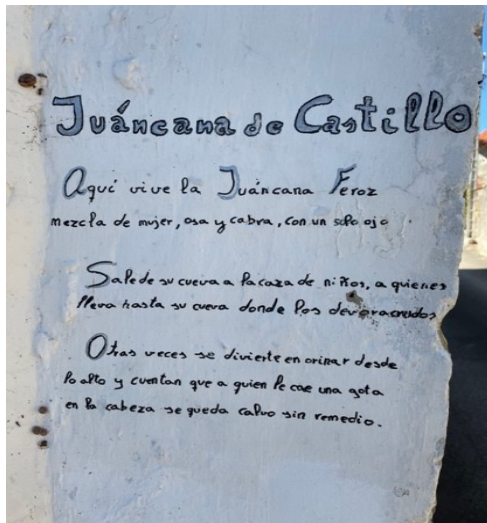 Juáncana de Castillo
Aquí vive la Juáncana Feroz
mezcla de mujer, osa y cabra, con un solo ojo.
Sale de su cueva a la caza de niños, a quienes
lleva hasta su cueva donde los devora crudos
Otras veces se divierte en orinar desde
lo alto y cuentan que a quien le cae una gota
en la cabeza se queda calvo sin remedio.